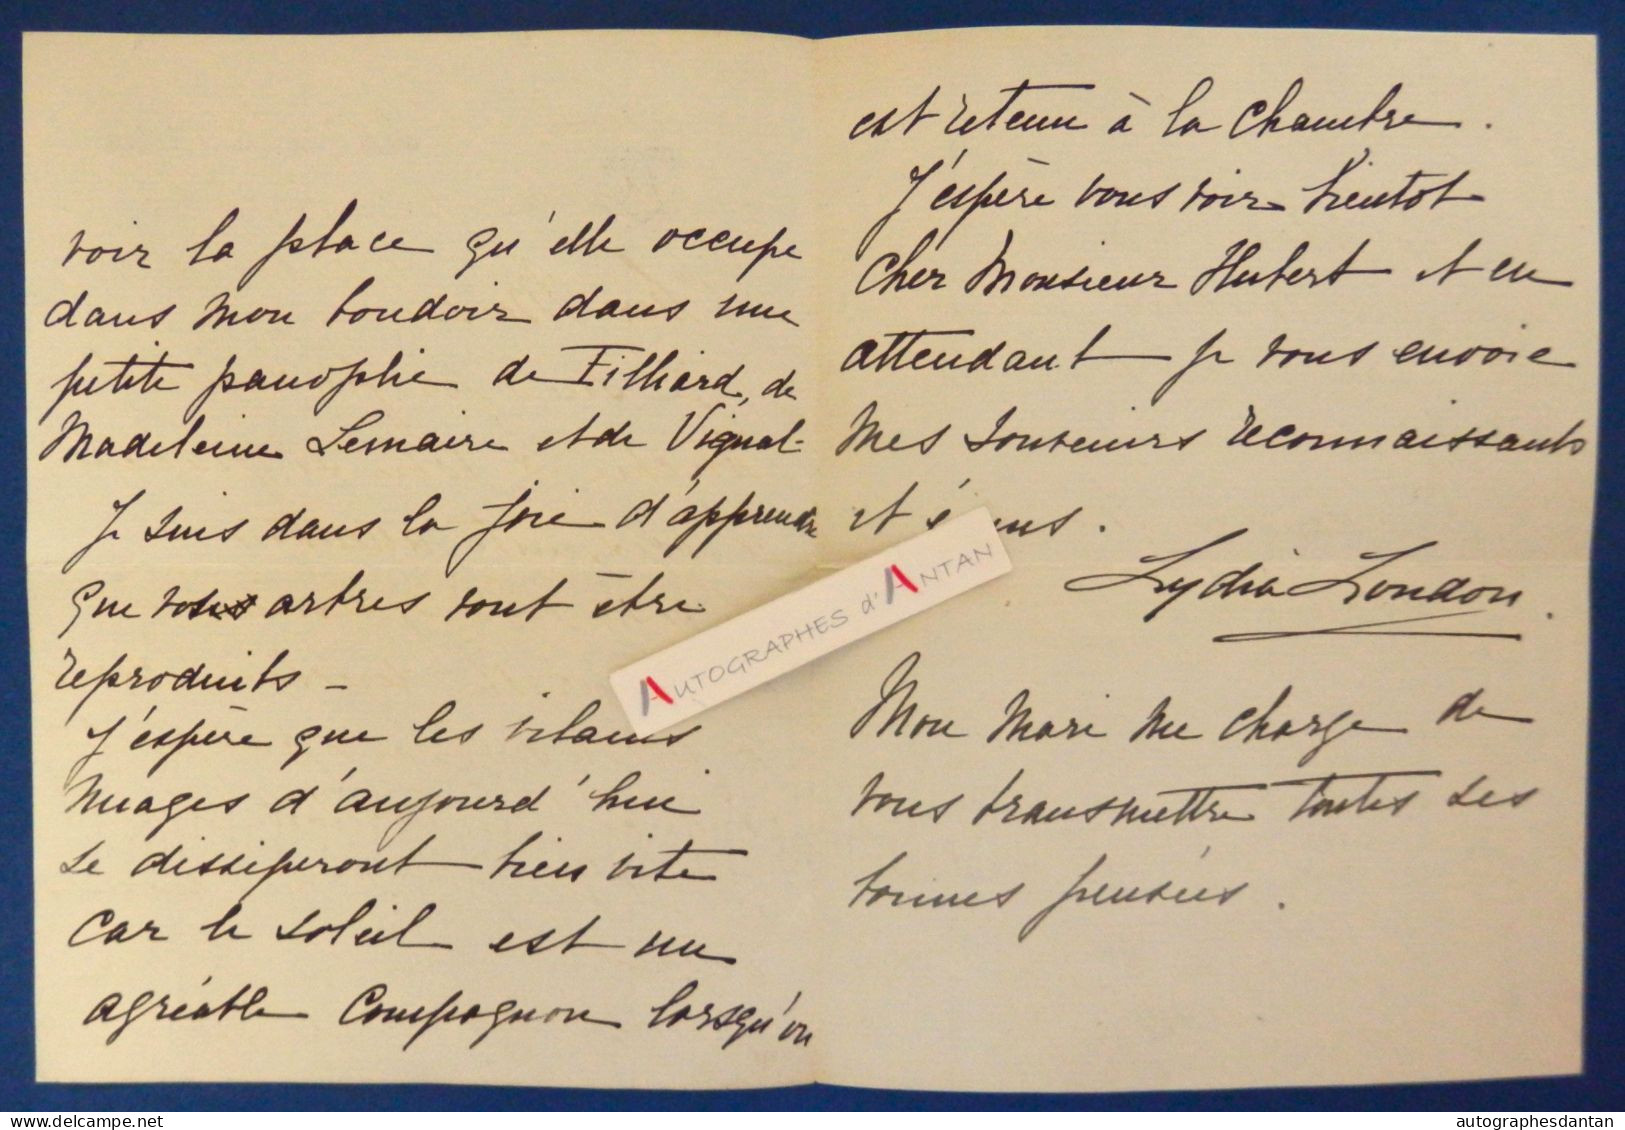 voir la place qu'elle occupe
dans mon boudoir dans une
petite panoplie de Filliard, de
Madeleine Lemaire et de Vignal-
Je suis dans la joie d'apprendre
que vos arbres vont être
reproduits -
J'espère que les vilains
nuages d'aujourd'hui
se dissiperont bien vite
car le soleil est un
agréable compagnon lorsqu'on
est retenu à la chambre.
J'espère vous voir bientot
cher Monsieur Hubert et en
attendant je vous envoie
mes souvenirs reconnaissants
et
Lydia London.
Mon mari me charge de
vous transmettre toutes ses
bonnes pensées.
AUTOGRAPHES d'ANTAN
delcampe.net
autographesdantan